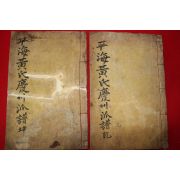 平海黃氏慶州派譜乾
平海黃氏慶州派譜坤